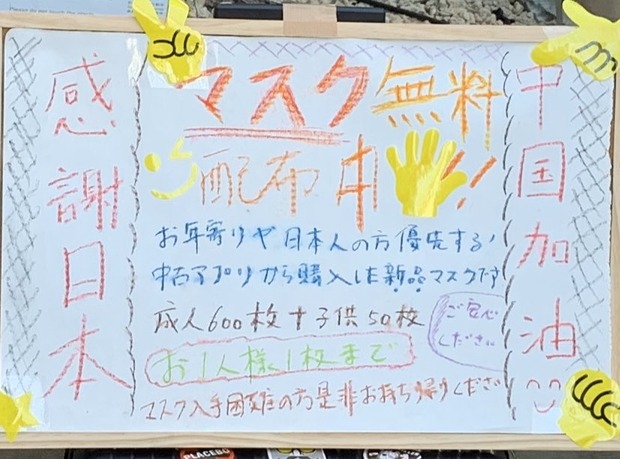 感謝日本
マスク無料
配布中!!
お年寄りや日本人の方優先する!
中古アプリから購入した新品マスクです
成人600枚+子供50枚
ご安心
ください
お1人様1枚まで
マスク入手困難の方是非お持ち帰りください
中国加油
PLACEBO